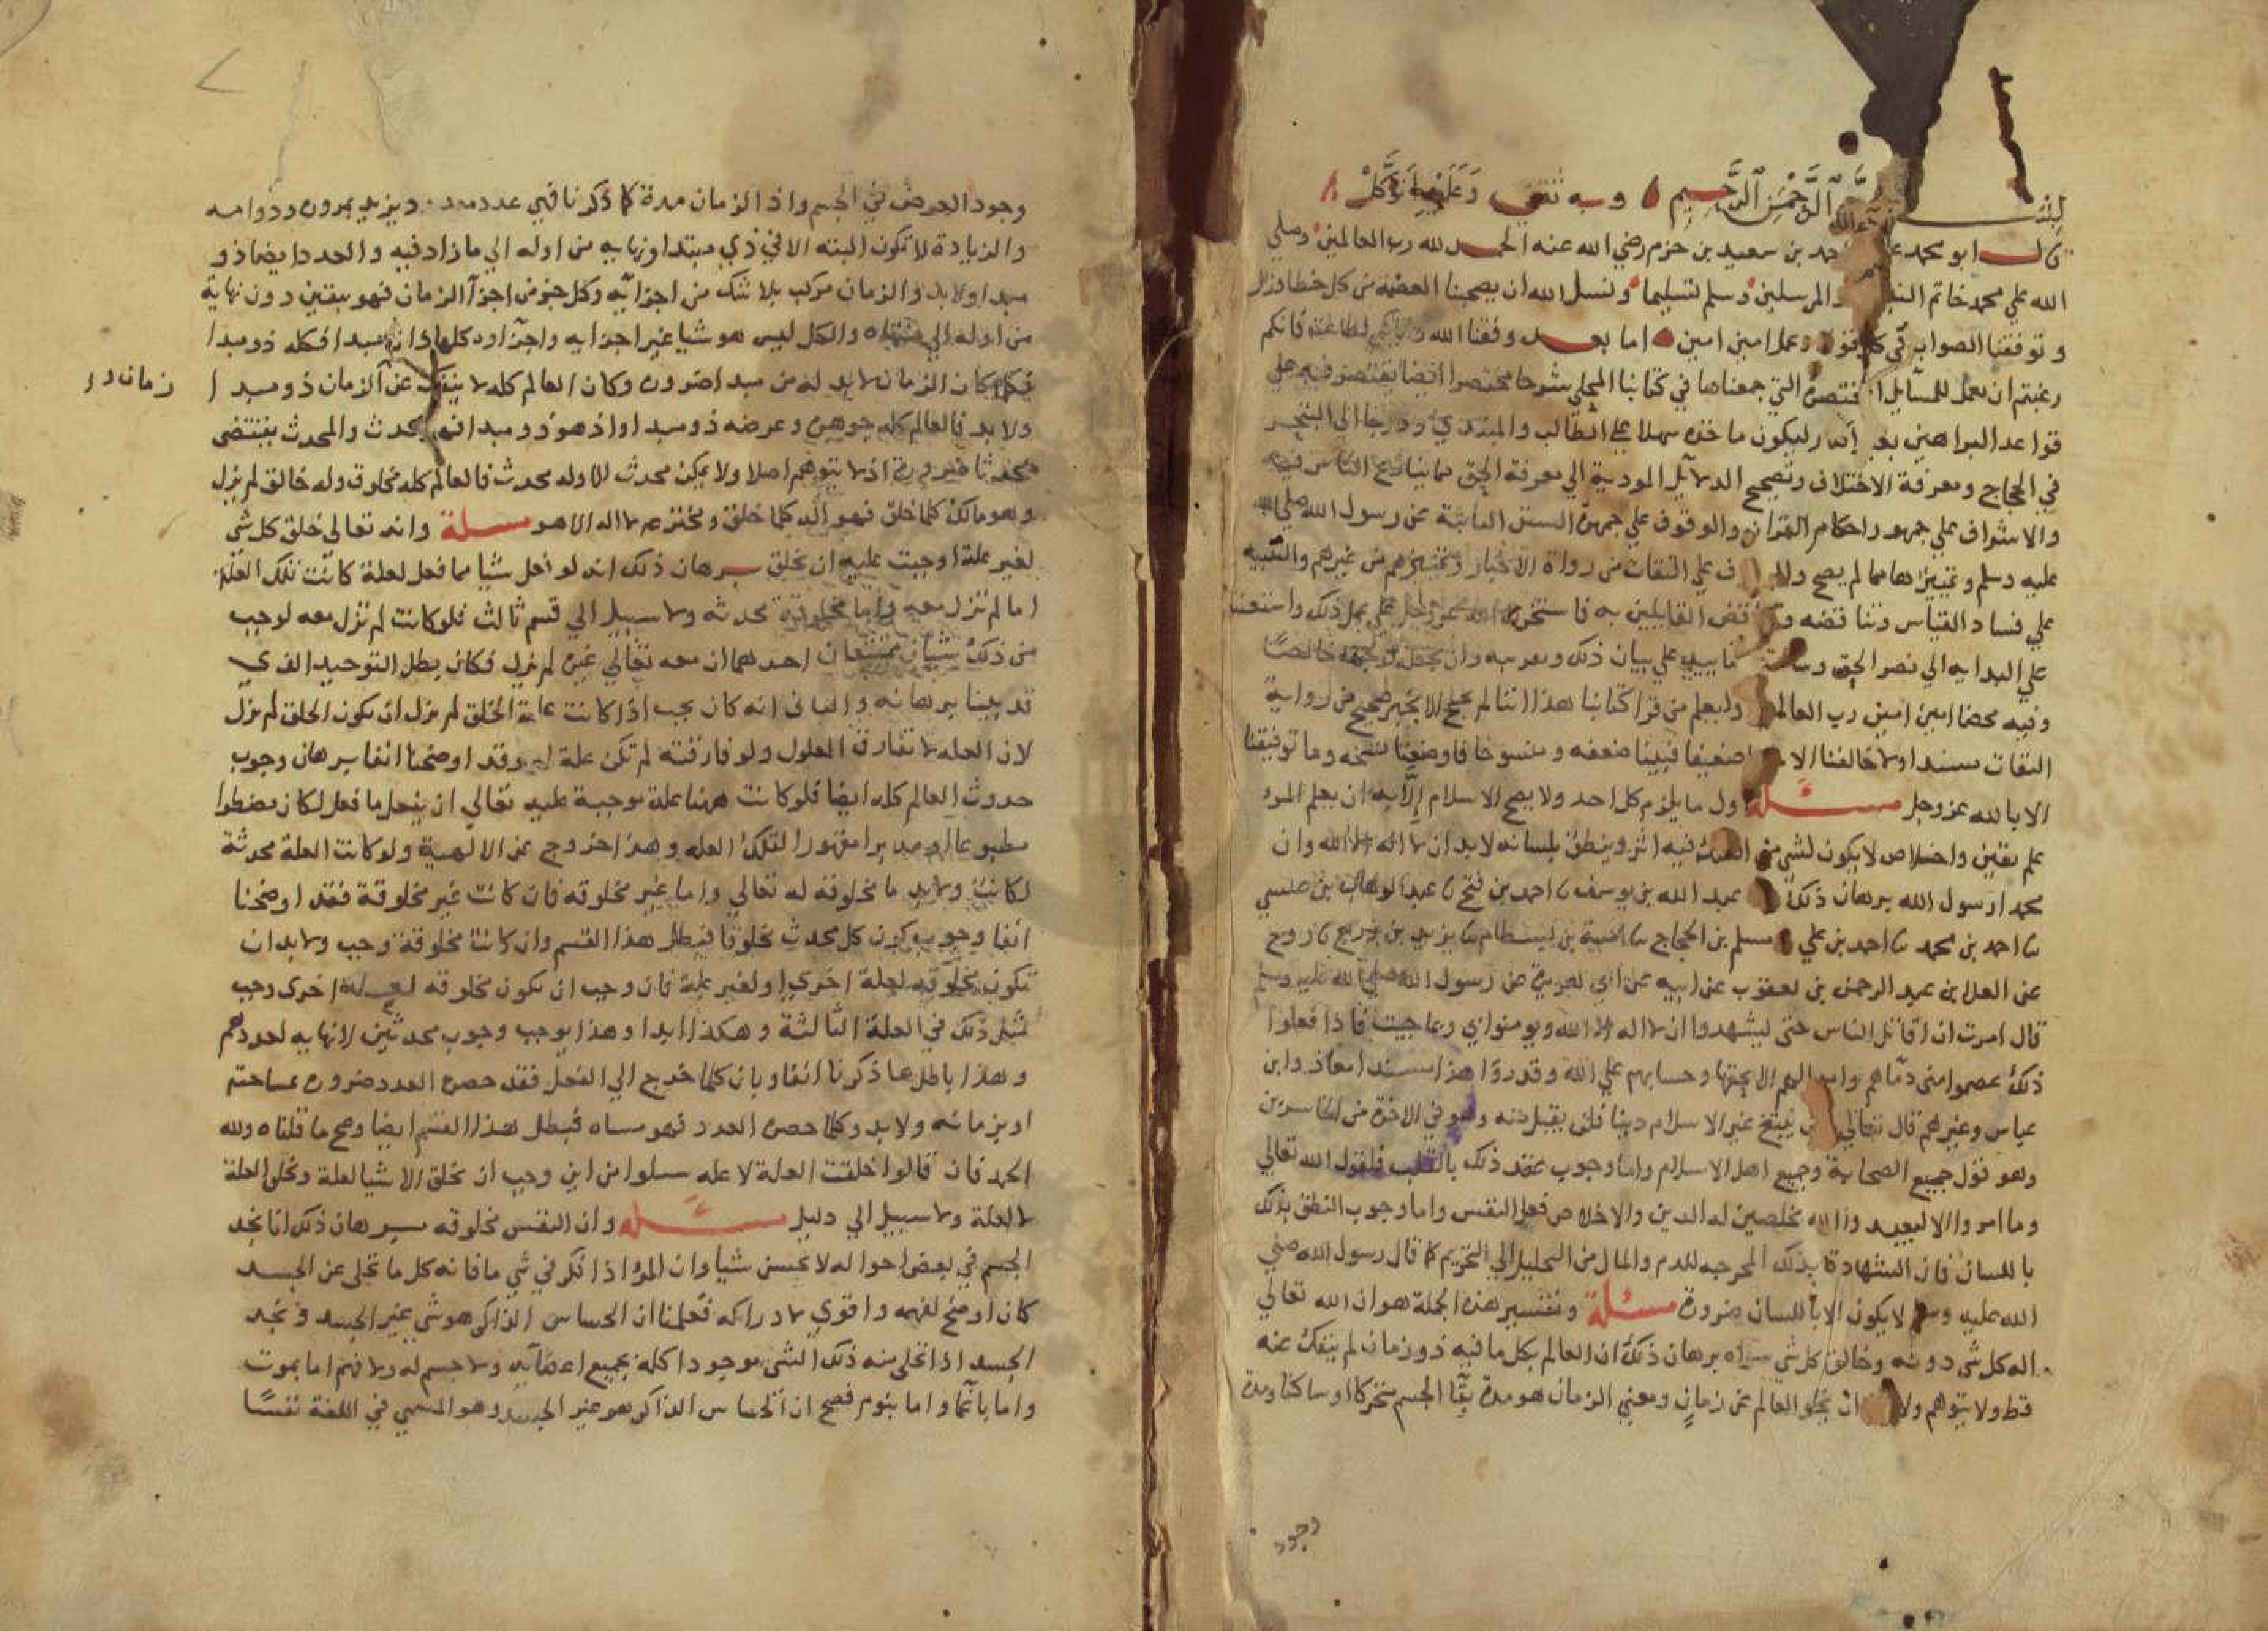 بسم الله الرحمن الرحيم وبه ثقتي وعليه توكلي
قال ابو محمد علي بن احمد بن سعيد بن حزم رضي الله عنه الحمد لله رب العالمين وصلى
الله علي محمد خاتم النبيين والمرسلين وسلم تسليما ونسل الله ان يصحبنا العصمة من كل خطا وزلل
و توفقنا الصواب في كل قول وعمل امين امين اما بعد وفقنا الله واياكم لطاعته فانكم
رغبتم ان نعمل للمسايل المختصرة التي جمعناها في كتابنا المحلي شرحا مختصرا ايضا نقتصر فيه علي
قواعد البراهين بغير اكثار ليكون ماخذه سهلا علي الطالب والمبتدي ودرجا الى التبحر
في الحجاج ومعرفة الاختلاف وتصحيح الدلايل المودية الي معرفة الحق مما تنازع الناس فيه
والاشراف علي جمهور احكام القران والوقوف علي جمهرة السنن الثابتة عن رسول الله صلي الله
عليه وسلم وتمييزها مما لم يصح والوقوف علي الثقات من رواة الاخبار وتمييزهم من غيرهم والتنبيه
علي فساد القياس وتناقضه وتناقض القايلين به فاستخرت الله عز وجل علي عمل ذلك واستعنته
علي الهدايه الي نصر الحق وسالته تاييدي علي بيان ذلك وتقريبه وان يجعله لوجهه خالصا
وفيه محضا امين امين رب العالمين وليعلم من قرا كتابنا هذا اننا لم نحتج الا بخبر صحيح من رواية
الثقات مسند اولا خالفنا الا خبرا ضعيفا فبينا ضعفه ومنسوخا فاوضحنا نسخه وما توفيقنا
الا بالله عز وجل مسئلة اول ما يلزم كل احد ولا يصح الاسلام الا به ان يعلم المرء
علم يقين واخلاص لا يكون لشي من الشك فيه اثر وينطق بلسانه لا بد ان لا اله الا الله وان
محمدا رسول الله برهان ذلك عبد الله بن يوسف نا احمد بن فتح نا عبد الوهاب بن عيسي
نا احمد بن محمد نا احمد بن علي نا مسلم بن الحجاج نا امية بن بسطام نا يزيد بن زريع نا روح
عن العلا بن عبد الرحمن بن يعقوب عن ابيه عن ابي هريرة عن رسول الله صلي الله عليه وسلم
قال امرت ان اقاتل الناس حتى يشهدوا ان لا اله الا الله ويومنوا بي وبما جيت فاذا فعلوا
ذلك عصموا مني دماهم واموالهم الا بحقها وحسابهم علي الله وقد روا هذا مسندا معاذ وابن
عباس وغيرهم قال تعالي ومن يبتغ غير الاسلام دينا فلن يقبل منه وهو في الاخرة من الخاسرين
وهو قول جميع الصحابة وجميع اهل الاسلام واما وجوب عقد ذلك بالقلب فلقول الله تعالي
وما امروا الا ليعبدوا الله مخلصين له الدين والاخلاص فعل النفس واما وجوب النطق بذلك
باللسان فان الشهادة بذلك المخرجه للدم والمال من التحليل الي التحريم كما قال رسول الله صلي
الله عليه وسلم لا يكون الا باللسان ضرورة مسئلة وتفسير هذه الجملة هو ان الله تعالي
اله كل شي دونه وخالق كل شي سواه برهان ذلك ان العالم بكل ما فيه ذو زمان لم ينفك عنه
قط ولا يتوهم ولا ان يخلو العالم عن زمان ومعني الزمان هو مدة بقا الجسم متحركا او ساكنا ومدة
وجود
وجود العرض في الجسم واذ الزمان مدة كما ذكرنا فهي عدد معدود ويزيد بمروره ودوامه
والزيادة لا تكون البته الا في ذي مبتدا ونهايه من اوله الي ما زاد فيه والعدد ايضا ذو
مبدا ولا بد والزمان مركب بلا شك من اجزايه وكل جز من اجزآ الزمان فهو بيقين دون نهاية
من اوله الي منتهاه والكل ليس هو شيا غير اجزايه واجزآوه كلها ذات مبدا فكله ذو مبدا
فلما كان الزمان لا بد له من مبدا ضرورة وكان العالم كله لا ينفك عن الزمان ذو مبدا
زمان ذو
ولا بد فالعالم كله جوهره وعرضه ذو مبدا واذ هو ذو مبدا فهو محدث والمحدث يقتضي
محدثا ضرورة اذ لا يتوهم اصلا ولا يمكن محدث الا وله محدث فالعالم كله مخلوق وله خالق لم يزل
وهو مالك كلما خلق فهو اله كلما خلق ومخترعه لا اله الا هو مسئلة وانه تعالى خلق كل شي
لغير علة اوجبت عليه ان يخلق برهان ذلك انه لو فعل شيا مما فعل لعلة كانت تلك العلة
اما لم تزل معه واما مخلوقة محدثه ولا سبيل الي قسم ثالث فلو كانت لم تزل معه لوجب
من ذلك شيان ممتنعان احدهما ان معه تعالي غيره لم يزل فكان يطل التوحيد الذي
قد بينا برهانه والثاني انه كان يجب اذا كانت علة الخلق لم تزل ان يكون الخلق لم يزل
لان العله لا تفارق المعلول ولو فارقته لم تكن علة له وقد اوضحنا انفا برهان وجوب
حدوث العالم كله ايضا فلو كانت ههنا علة موجبة عليه تعالي ان يفعل ما فعل لكان مضطرا
مطبوعا او مدبرا مقهورا لتلك العله وهذا خروج عن الالهية ولو كانت العلة محدثة
لكانت ولا بد اما مخلوقه له تعالي واما غير مخلوقه فان كانت غير مخلوقة فقد اوضحنا
انفا وجوب كون كل محدث مخلوقا فبطل هذا القسم وان كانت مخلوقة وجب ولا بد ان
تكون مخلوقه لعلة اخري او لغير علة فان وجب ان تكون مخلوقه لعلة اخرى وجب
مثل ذلك في العلة الثالثة وهكذا ابدا وهذا يوجب وجوب محدثين لا نهايه لعددهم
وهذا باطل بما ذكرنا انفا وبان كلما خرج الي الفعل فقد حصره العدد ضرورة بمساحته
او بزمانه ولا بد وكلما حصره العدد فهو متناه فبطل هذا القسم ايضا وصح ما قلناه ولله
الحمد فان قالوا خلقت العلة لا عله سيلوا من اين وجب ان يخلق الاشيا لعلة وتخلق العلة
لا لعلة ولا سبيل الي دليل مسئلة وان النفس مخلوقه برهان ذلك انا نجد
الجسم في بعض احواله لا يحس شيا وان المرء اذا فكر في شي ما فانه كل ما تخلى عن الجسد
كان اوضح لفهمه واقوي لادراكه فعلمنا ان الحساس الذاكر هو شي غير الجسد ونجد
الجسد اذا تخلى منه ذلك الشي موجودا كله بجميع اعضايه ولا حس له ولا فهم اما بموت
واما باغما واما بنوم فصح ان الحساس الذاكر هو غير الجسد وهو المسمي في اللغة نفسا